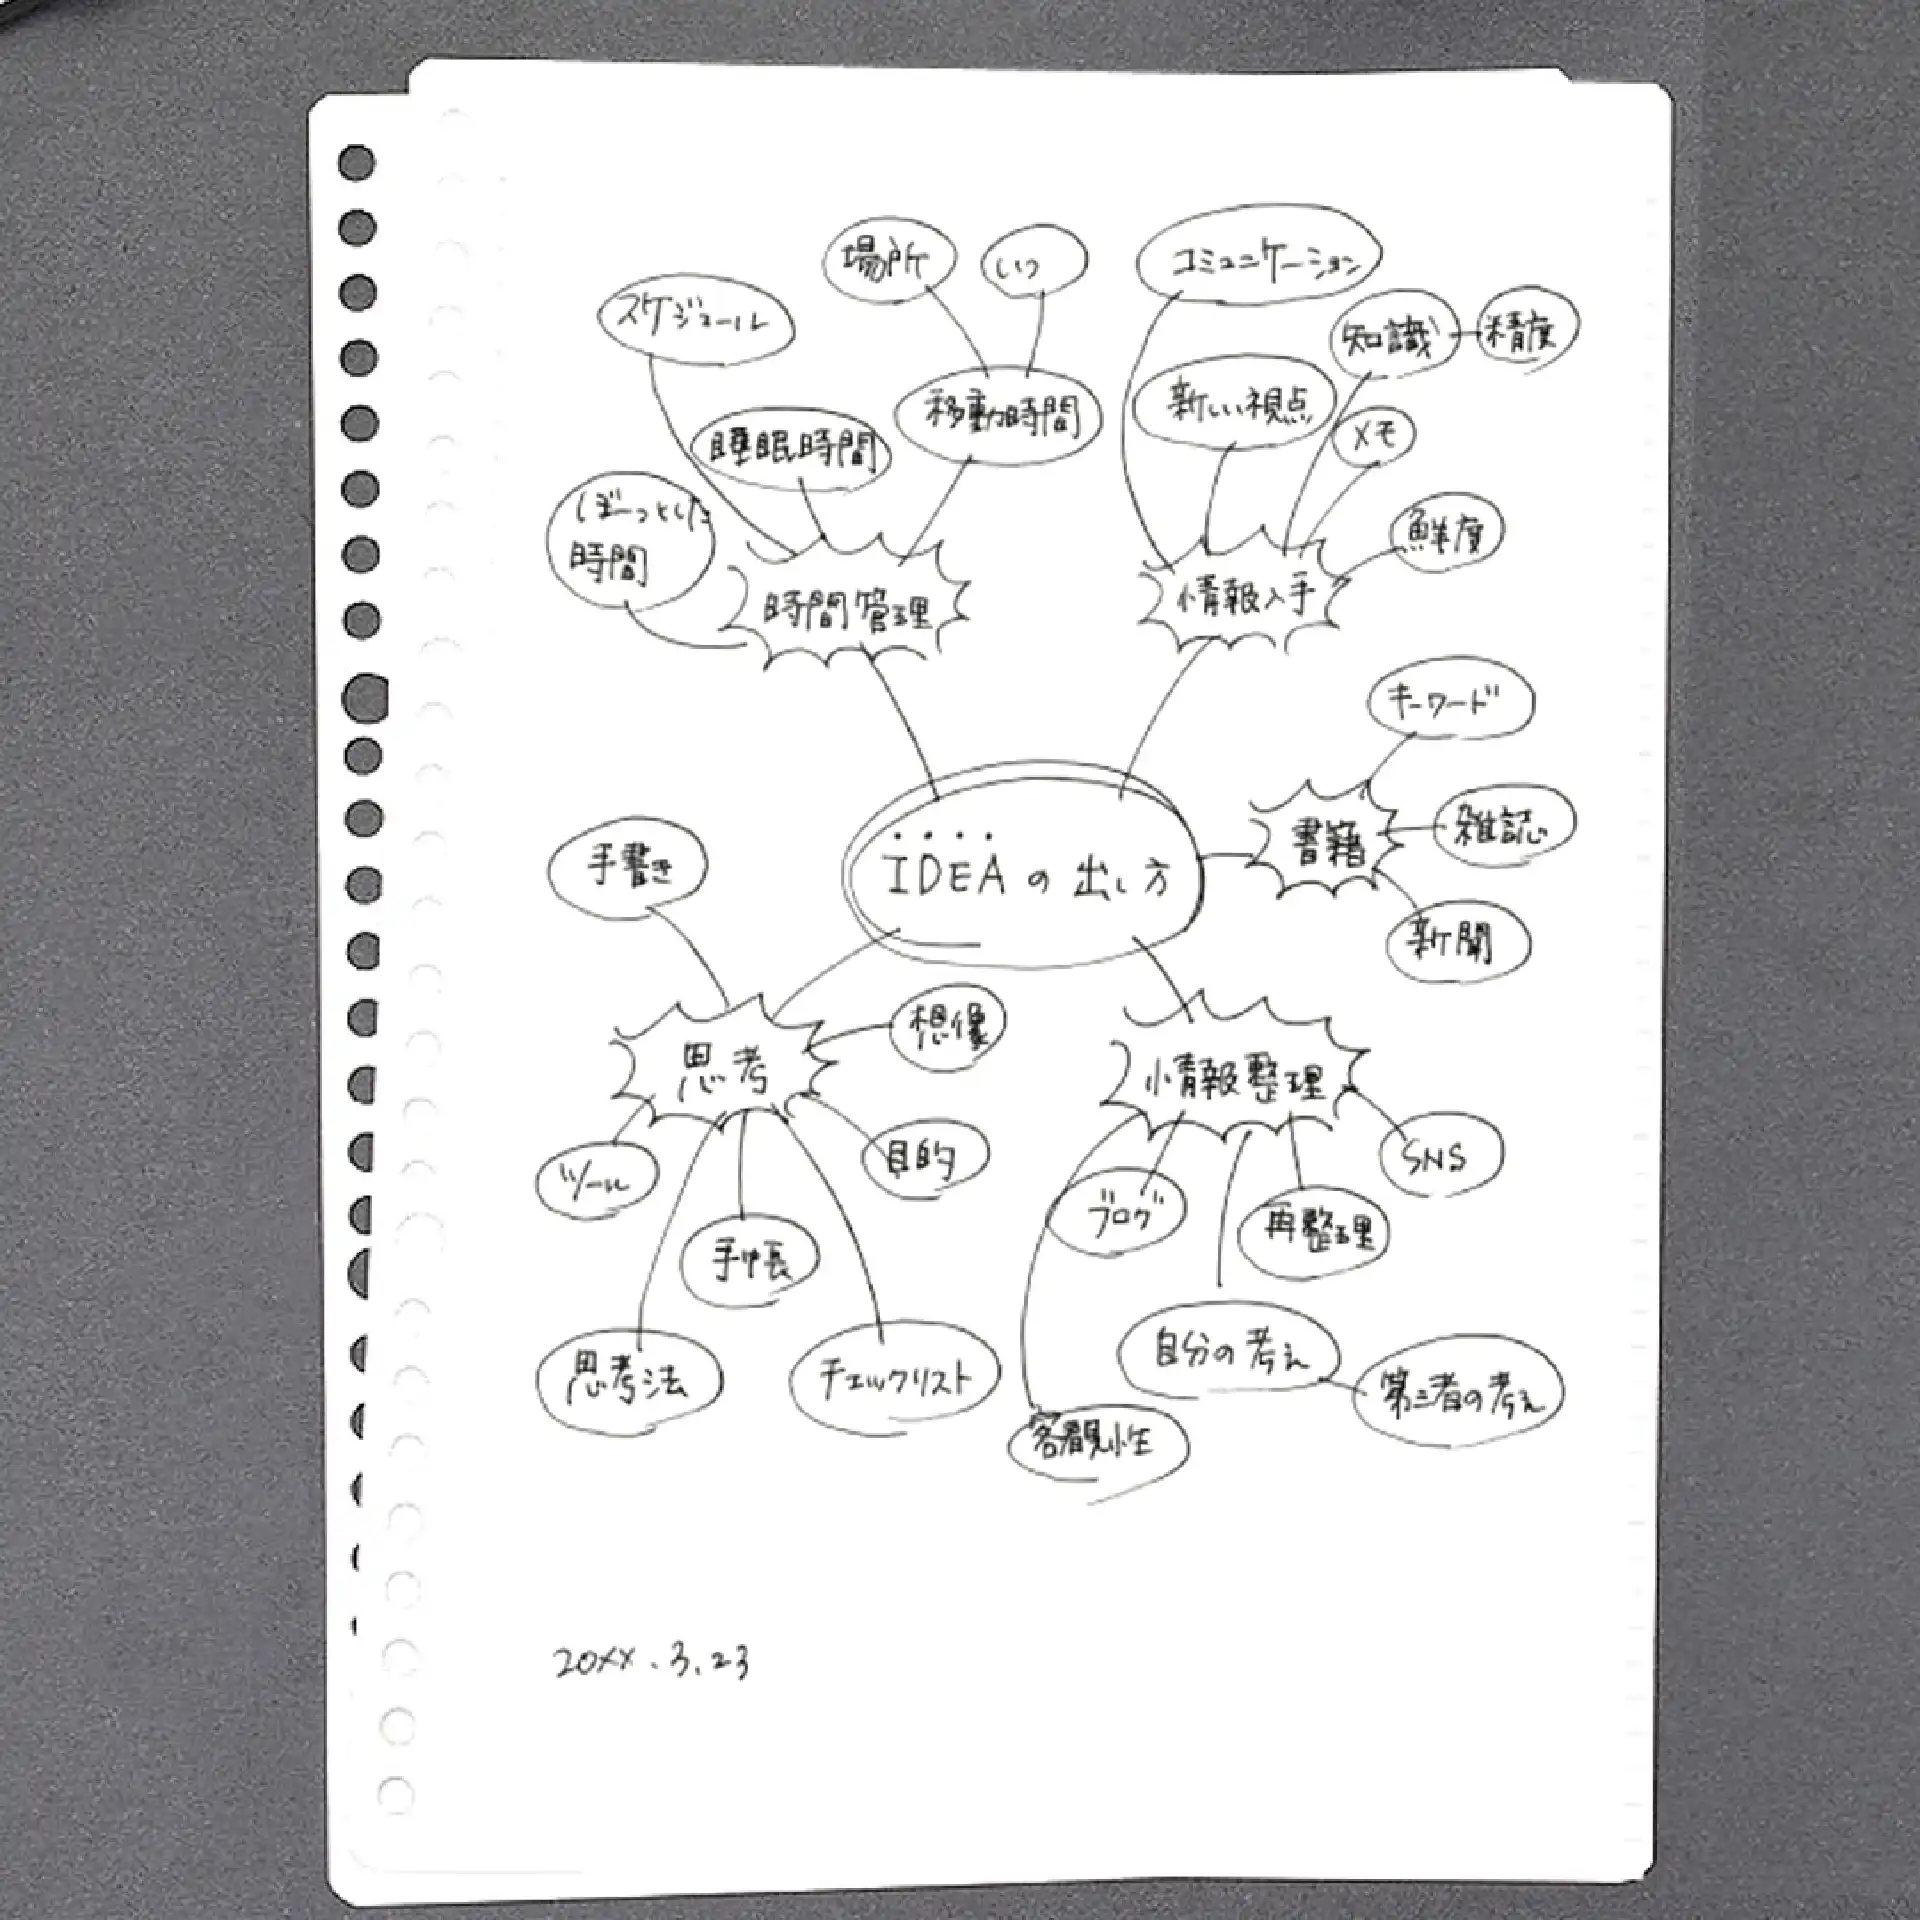 場所
いつ
コミュニケーション
スケジュール
知識
精度
移動時間
新しい視点
メモ
睡眠時間
ぼーっとした
時間
鮮度
時間管理
情報入手
キーワード
書籍
雑誌
手書き
IDEAの出し方
新聞
思考
想像
情報整理
ツール
目的
SNS
手帳
ブログ
再整理
思考法
チェックリスト
自分の考え
第三者の考え
客観性
20XX.3.23